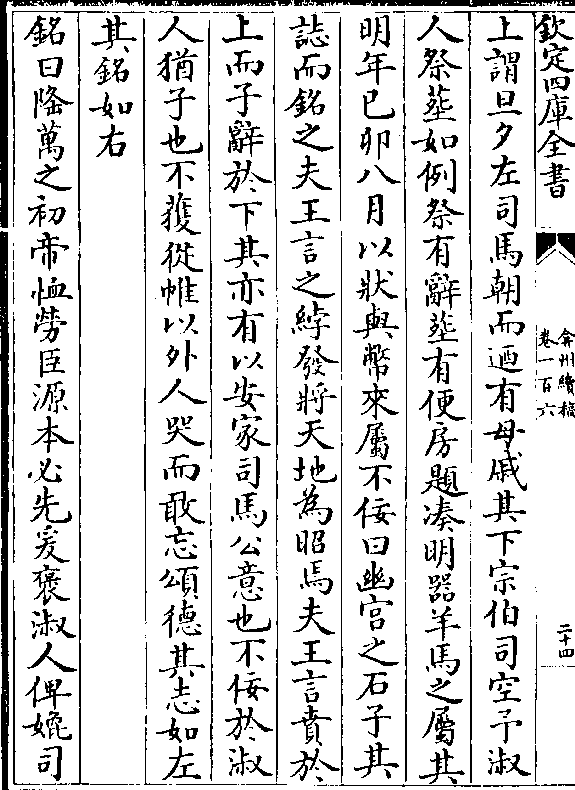 欽定四庫全書
弇州續稿
卷一百六
二十四
上謂旦夕左司馬朝而迺有母戚其下宗伯司空予淑
人祭塟如例祭有辭塟有便房題凑明器羊馬之屬其
明年已卯八月以狀與幣來屬不佞曰幽宫之石子其
誌而銘之夫王言之綍發將天地為昭焉夫王言賁於
上而子辭於下其亦有以安家司馬公意也不佞於淑
人猶子也不獲從帷以外人哭而敢忘頌德其志如左
其銘如右
銘曰隆萬之初帝恤勞臣源本必先爰褒淑人俾媲司